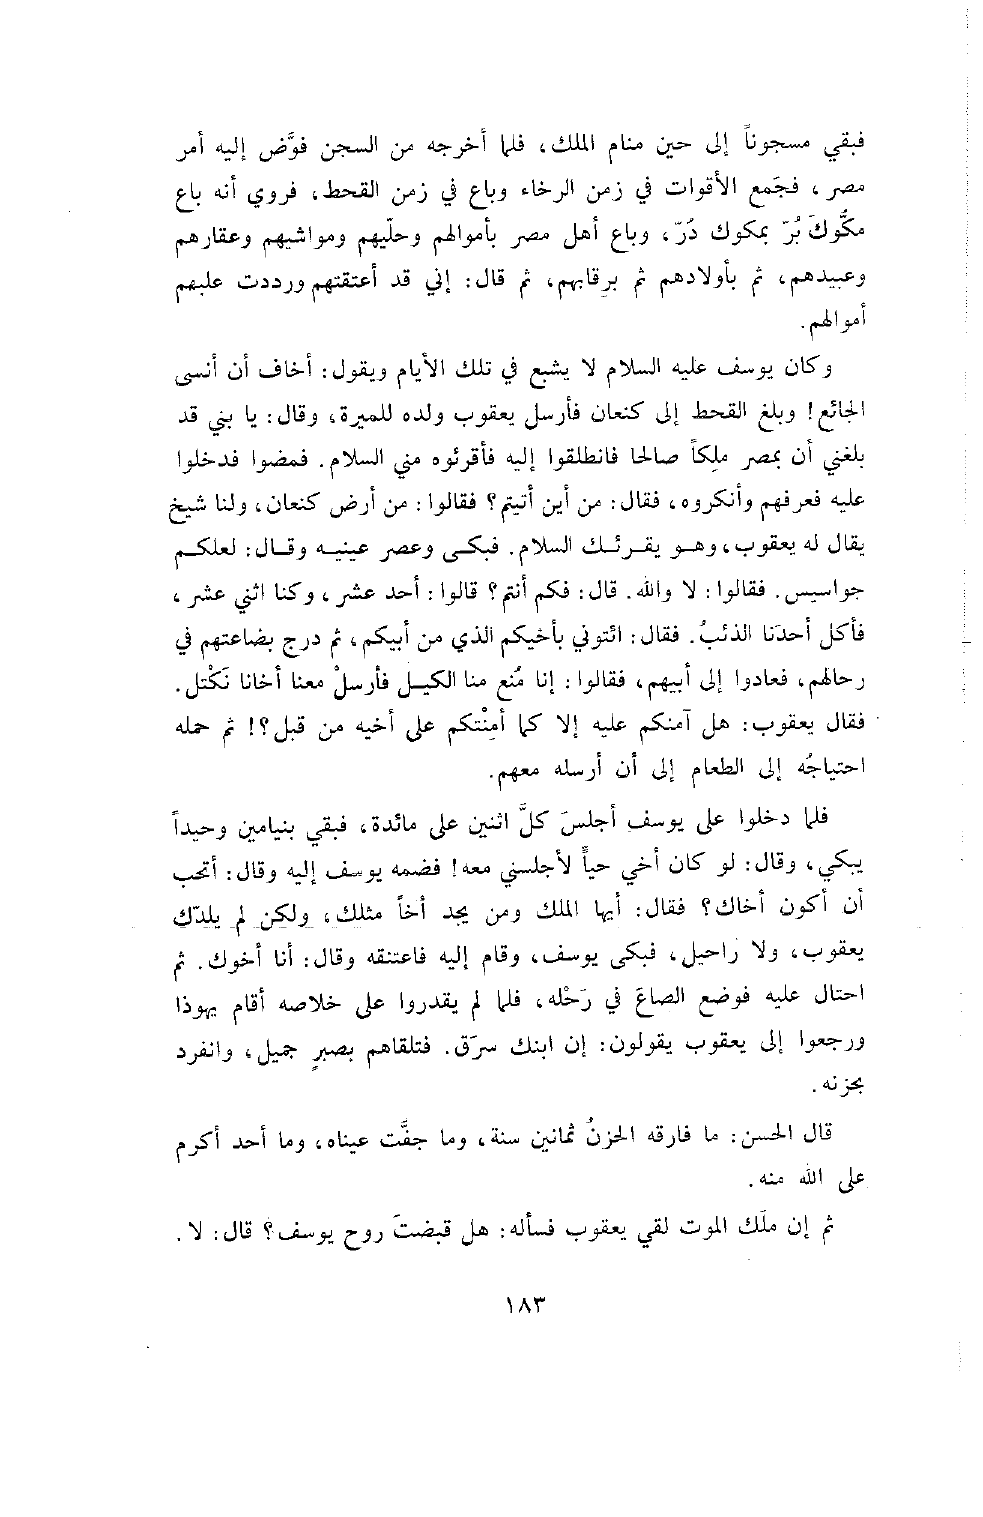 فبقي مسجوناً إلى حين منام الملك، فلما أخرجه من السجن فوَّض إليه أمر
مصر، فجَمع الأقوات في زمن الرخاء وباع في زمن القحط، فروي أنه باع
مكُّوكَ بُرّ بمكوك دُرّ، وباع أهل مصر بأموالهم وحليّهم ومواشيهم وعقارهم
وعبيدهم، ثم بأولادهم ثم برِقابهم، ثم قال: إني قد أعتقتهم ورددت عليهم
أموالهم.
وكان يوسف عليه السلام لا يشبع في تلك الأيام ويقول: أخاف أن أنسى
الجائع! وبلغ القحط إلى كنعان فأرسل يعقوب ولده للميرة، وقال: يا بني قد
بلغني أن بمصر ملِكاً صالحا فانطلقوا إليه فأقرئوه مني السلام. فمضوا فدخلوا
عليه فعرفهم وأنكروه، فقال: من أين أتيتم؟ فقالوا: من أرض كنعان، ولنا شيخ
يقال له يعقوب، وهو يقرئك السلام. فبكى وعصر عينيه وقال: لعلكم
جواسيس. فقالوا: لا والله. قال: فكم أنتم؟ قالوا: أحد عشر، وكنا اثني عشر،
فأكل أحدَنا الذئبُ. فقال: ائتوني بأخيكم الذي من أبيكم، ثم درج بضاعتهم في
رحالهم، فعادوا إلى أبيهم، فقالوا: إنا مُنع منا الكيل فأرسلْ معنا أخانا نَكْتل.
فقال يعقوب: هل آمنكم عليه إلا كما أمِنْتكم على أخيه من قبل؟! ثم حمله
احتياجُه إلى الطعام إلى أن أرسله معهم.
فلما دخلوا على يوسف أجلسَ كلَّ اثنين على مائدة، فبقي بنيامين وحيداً
يبكي، وقال: لو كان أخي حياً لأجلسني معه! فضمه يوسف إليه وقال: أتحب
أن أكون أخاك؟ فقال: أيها الملك ومن يجد أخاً مثلك، ولكن لم يلدْك
يعقوب، ولا راحيل، فبكى يوسف، وقام إليه فاعتنقه وقال: أنا أخوك. ثم
احتال عليه فوضع الصاعَ في رَحْله، فلما لم يقدروا على خلاصه أقام يهوذا
ورجعوا إلى يعقوب يقولون: إن ابنك سرَق. فتلقاهم بصبرٍ جميل، وانفرد
بحزنه.
قال الحسن: ما فارقه الحزنُ ثمانين سنة، وما جفَّت عيناه، وما أحد أكرم
على الله منه.
ثم إن ملَك الموت لقي يعقوب فسأله: هل قبضتَ روح يوسف؟ قال: لا.
١٨٣